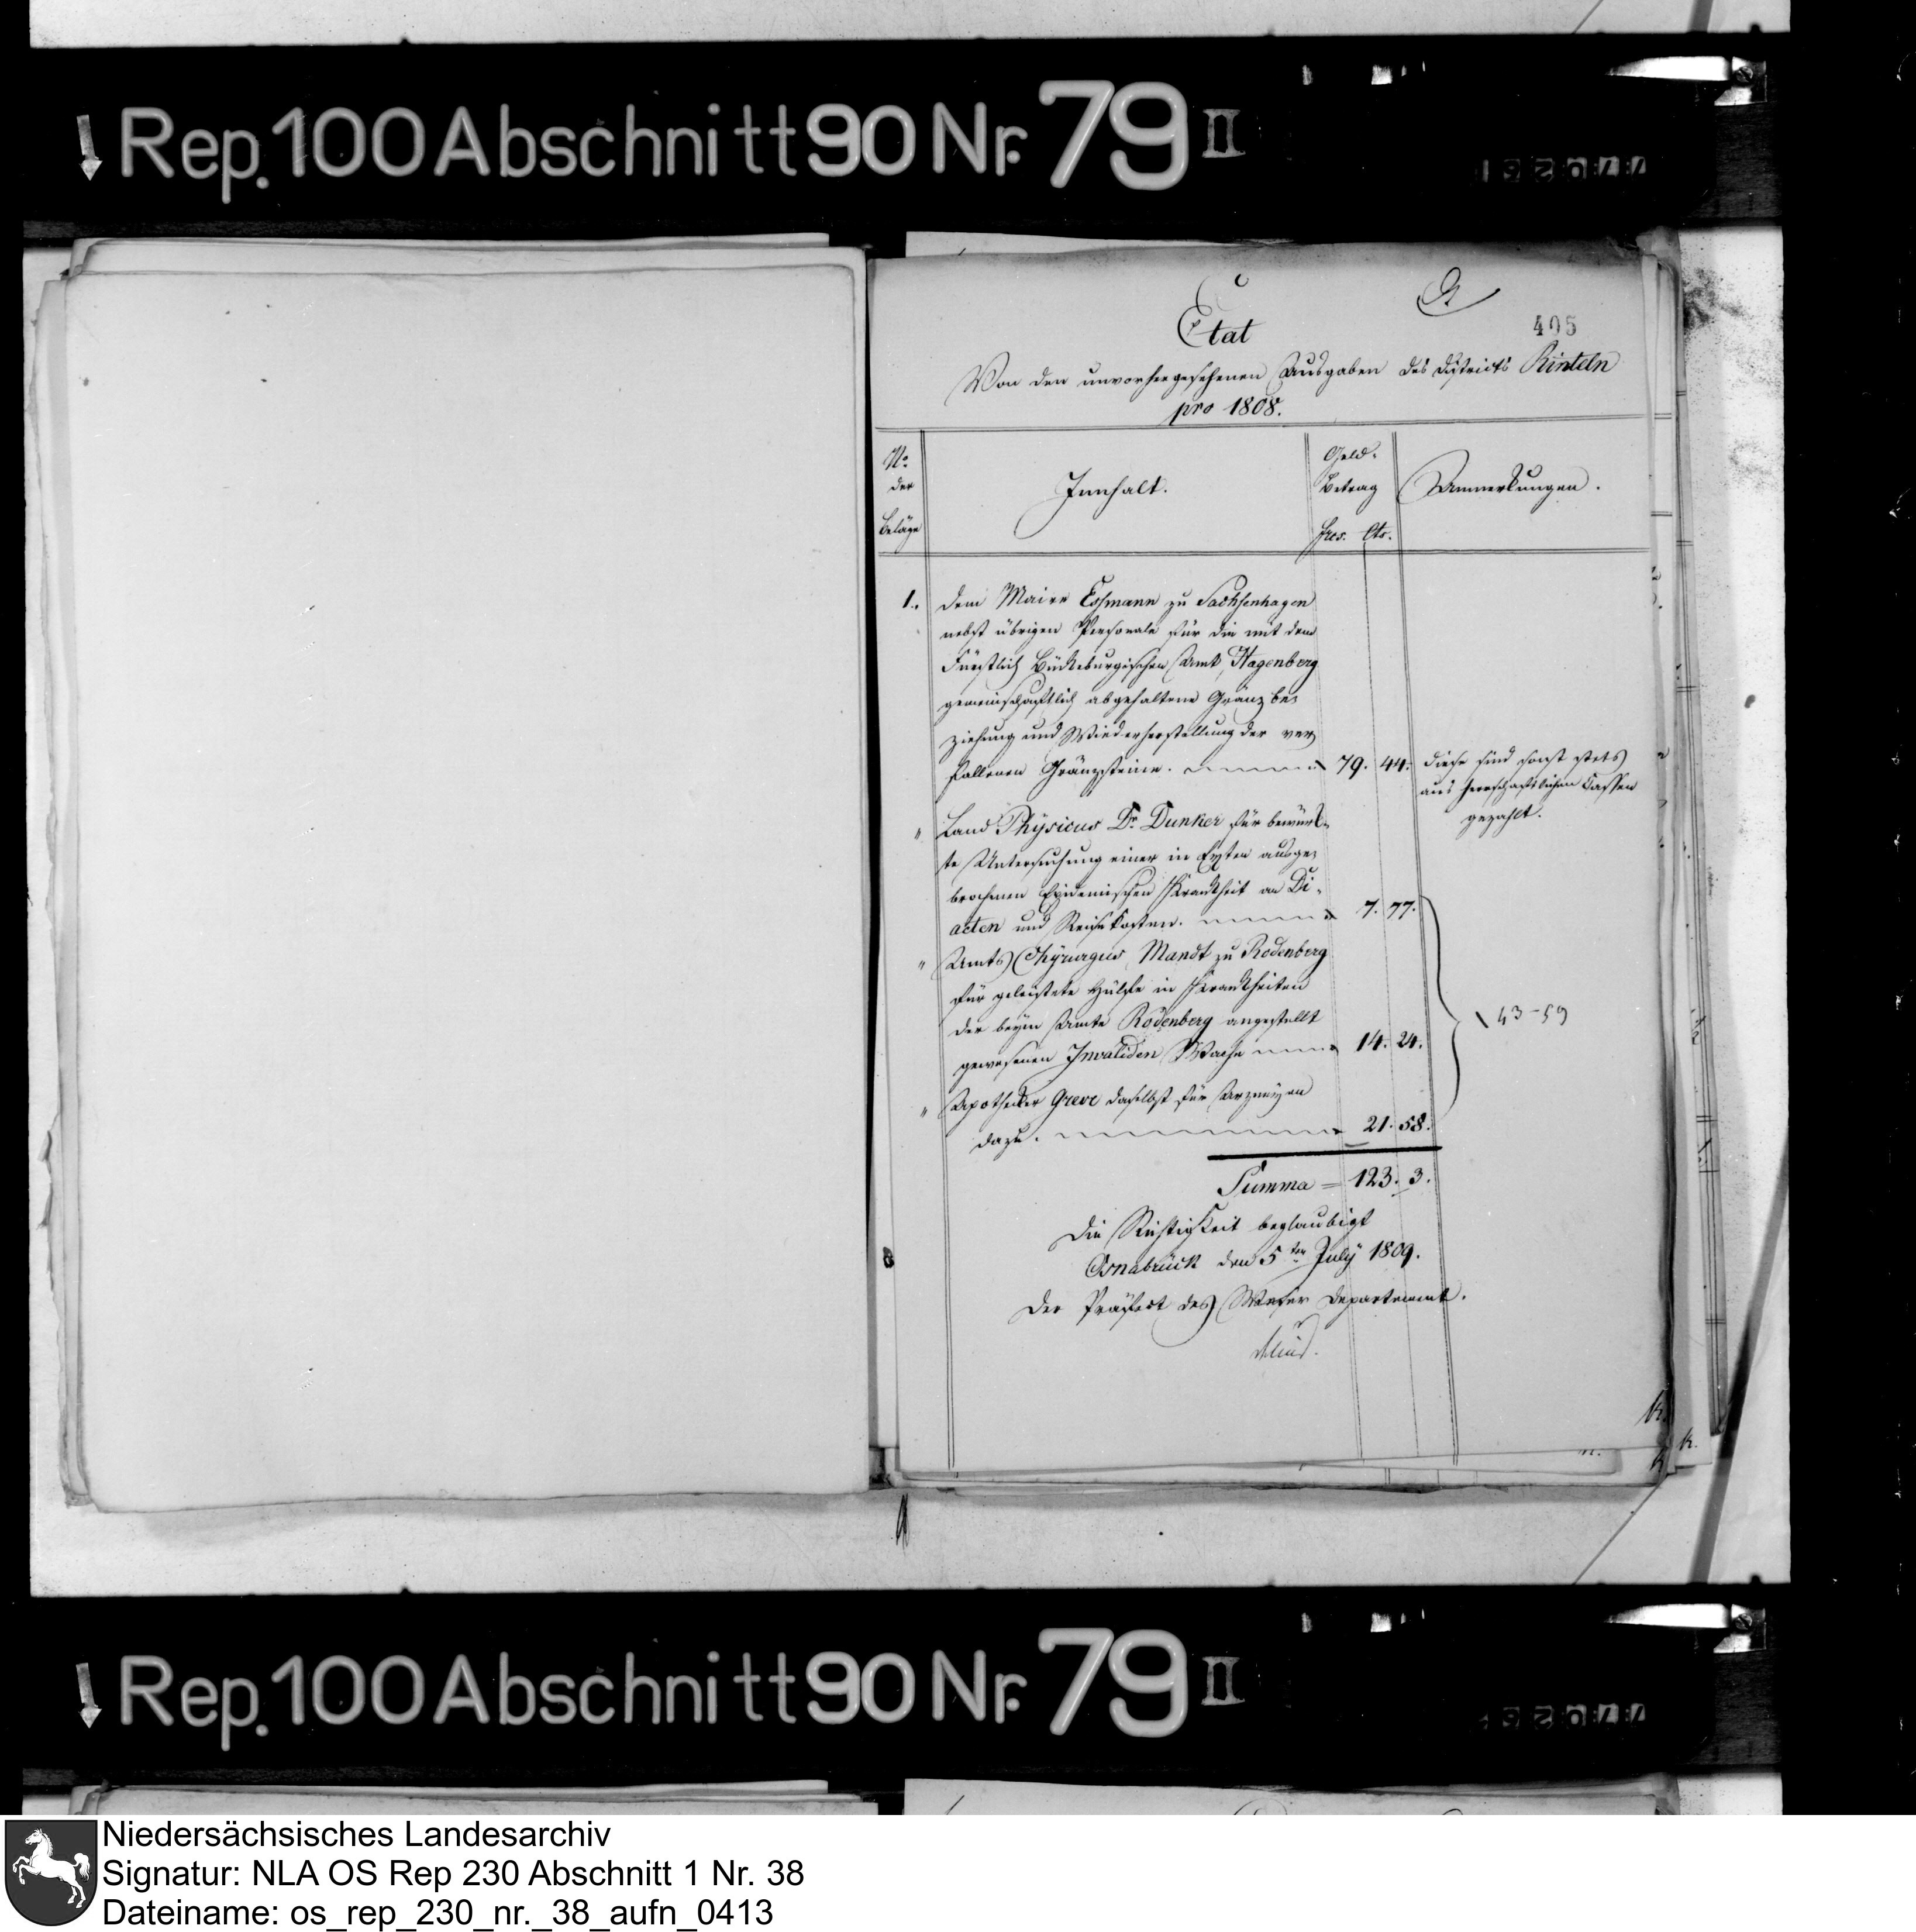 Rep. 100 Abschnitt 90 Nr. 79 II
A
405
Etat
Von den unvorhergesehenen Ausgaben des Districts Rinteln
pro 1808.
No
der
Beläge
Innhalt.
Geld-
Betrag
frcs. Cts.
Anmerkungen.
1. dem Maire Essmann zu Sachsenhagen
nebst übrigen Personale für die mit dem
Fürstlich Bückeburgischen Amt Hagenberg
gemeinschaftlich abgehaltene Gränz be-
ziehung und Wiederherstellung der ver-
fallenen Gränzsteine. 79. 44.
diese sind sonst stets
aus herrschaftlichen Cassen
gezahlt.
" Land Physicus Dr. Dunker für bewürk-
te Untersuchung einer in Exten ausge-
brochenen Epidemischen Krankheit an Di-
aeten und Reisekosten. 7. 77.
" Amts Chyrurgus Mandt zu Rodenberg
für geleistete Hülfe in Krankheiten
der beym Amte Rodenberg angestellt
gewesenen Invaliden Wache 14. 24.
43-59
" Apotheker Greve daselbst für Arzneyen
dazu. 21. 58.
Summa = 123. 3.
Die Richtigkeit beglaubigt
Osnabrück den 5ten July 1809.
Der Präfect des Weser Departement.
Rep. 100 Abschnitt 90 Nr. 79 II
Niedersächsisches Landesarchiv
Signatur: NLA OS Rep 230 Abschnitt 1 Nr. 38
Dateiname: os_rep_230_nr._38_aufn_0413